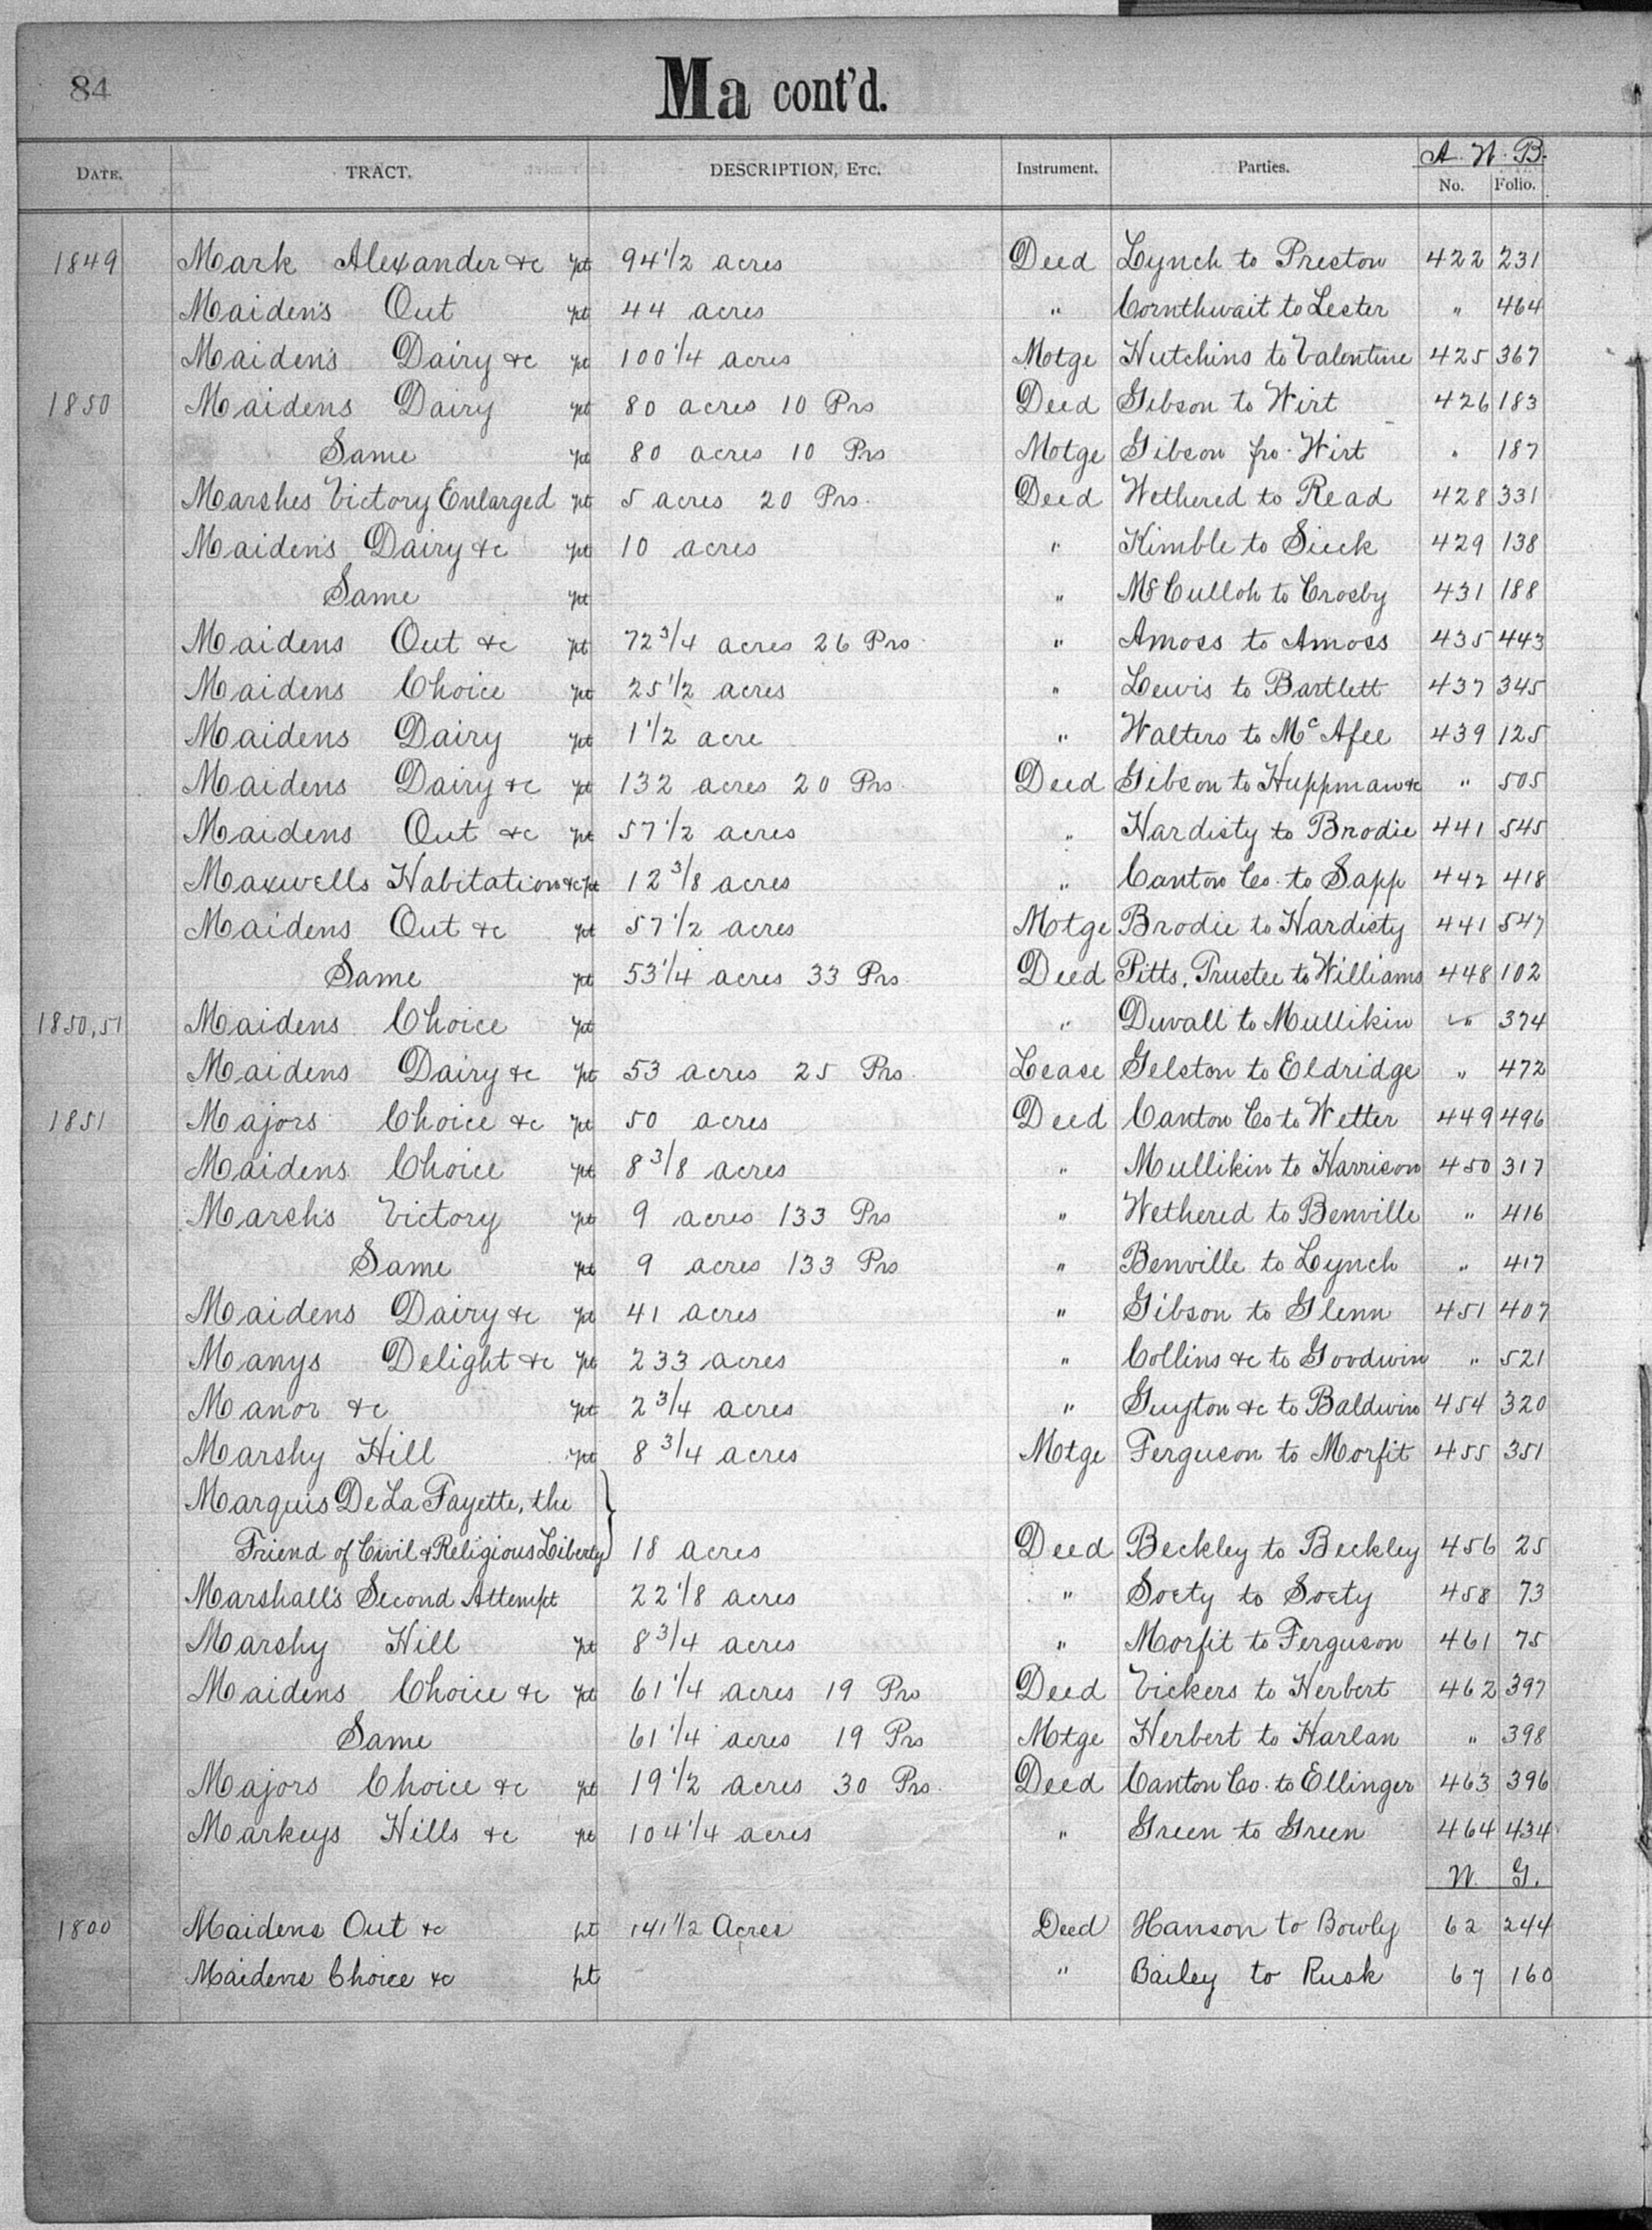 84
Ma cont'd.
DATE. TRACT. DESCRIPTION, ETC. Instrument. Parties. A. W. B.
No. Folio.
1849 Mark Alexander &c pt 94 1/2 acres Deed Lynch to Preston 422 231
Maiden's Out pt 44 acres " Cornthwait to Lester " 464
Maiden's Dairy &c pt 100 1/4 acres Motge Hutchins to Valentine 425 367
1850 Maidens Dairy pt 80 acres 10 Prs Deed Gibson to Wirt 426 183
Same pt 80 acres 10 Prs Motge Gibson fro. Wirt " 187
Marshes Victory Enlarged pt 5 acres 20 Prs. Deed Wethered to Read 428 331
Maiden's Dairy &c pt 10 acres " Kimble to Sieck 429 138
Same pt " McCulloh to Crosby 431 188
Maidens Out &c pt 72 3/4 acres 26 Prs. " Amoss to Amoss 435 443
Maidens Choice pt 25 1/2 acres " Lewis to Bartlett 437 345
Maidens Dairy pt 1 1/2 acre " Walters to McAfee 439 125
Maidens Dairy &c pt 132 acres 20 Prs. Deed Gibson to Huppman &c " 505
Maidens Out &c pt 57 1/2 acres " Hardisty to Brodie 441 545
Maxwells Habitation &c pt 12 3/8 acres " Canton Co. to Sapp 442 418
Maidens Out &c pt 57 1/2 acres Motge Brodie to Hardisty 441 547
Same pt 53 1/4 acres 33 Prs. Deed Pitts, Trustee to Williams 448 102
1850,51 Maidens Choice pt " Duvall to Mullikin " 374
Maidens Dairy &c pt 53 acres 25 Prs. Lease Gelston to Eldridge " 472
1851 Majors Choice &c pt 50 acres Deed Canton Co to Wetter 449 496
Maidens Choice pt 8 3/8 acres " Mullikin to Harrison 450 317
Marsh's Victory pt 9 acres 133 Prs " Wethered to Benville " 416
Same pt 9 acres 133 Prs " Benville to Lynch " 417
Maidens Dairy &c pt 41 acres " Gibson to Glenn 451 407
Manys Delight &c pt 233 acres " Collins &c to Goodwin " 521
Manor &c pt 2 3/4 acres " Guyton &c to Baldwin 454 320
Marshy Hill pt 8 3/4 acres Motge Ferguson to Morfit 455 351
Marquis De La Fayette, the
Friend of Civil & Religious Liberty 18 acres Deed Beckley to Beckley 456 25
Marshall's Second Attempt 22 1/8 acres " Soety to Soety 458 73
Marshy Hill pt 8 3/4 acres " Morfit to Ferguson 461 75
Maidens Choice &c pt 61 1/4 acres 19 Prs Deed Vickers to Herbert 462 397
Same 61 1/4 acres 19 Prs Motge Herbert to Harlan " 398
Majors Choice &c pt 19 1/2 acres 30 Prs. Deed Canton Co. to Ellinger 463 396
Markeys Hills &c pt 104 1/4 acres " Green to Green 464 434
W. G.
1800 Maidens Out &c pt 141 1/2 Acres Deed Hanson to Bowly 62 244
Maidens Choice &c pt " Bailey to Rusk 67 160